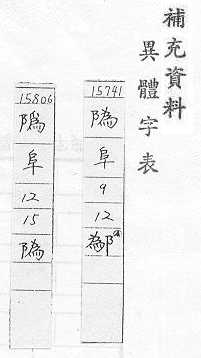 補充資料
異體字表
15741
阜
9
12
15806
阜
12
15